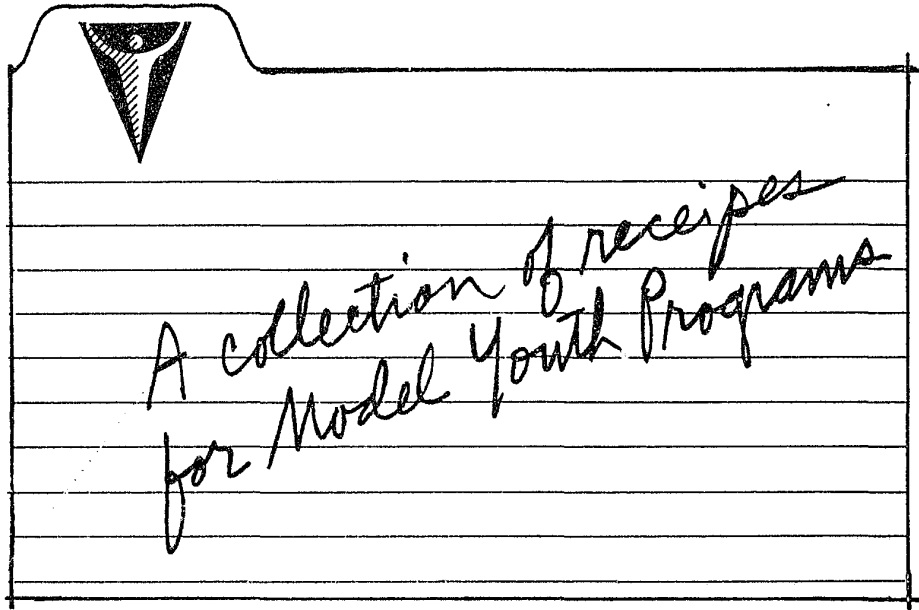 A collection of receipes
for Model Youth Programs